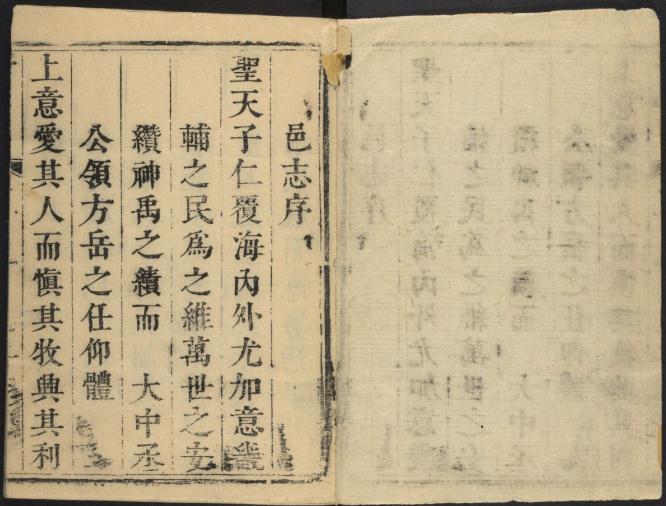 邑志序
聖天子仁覆海內外尤加意畿
輔之民爲之維萬世之安
纘神禹之績而 大中丞
公領方岳之任仰體
上意愛其人而慎其牧興其利